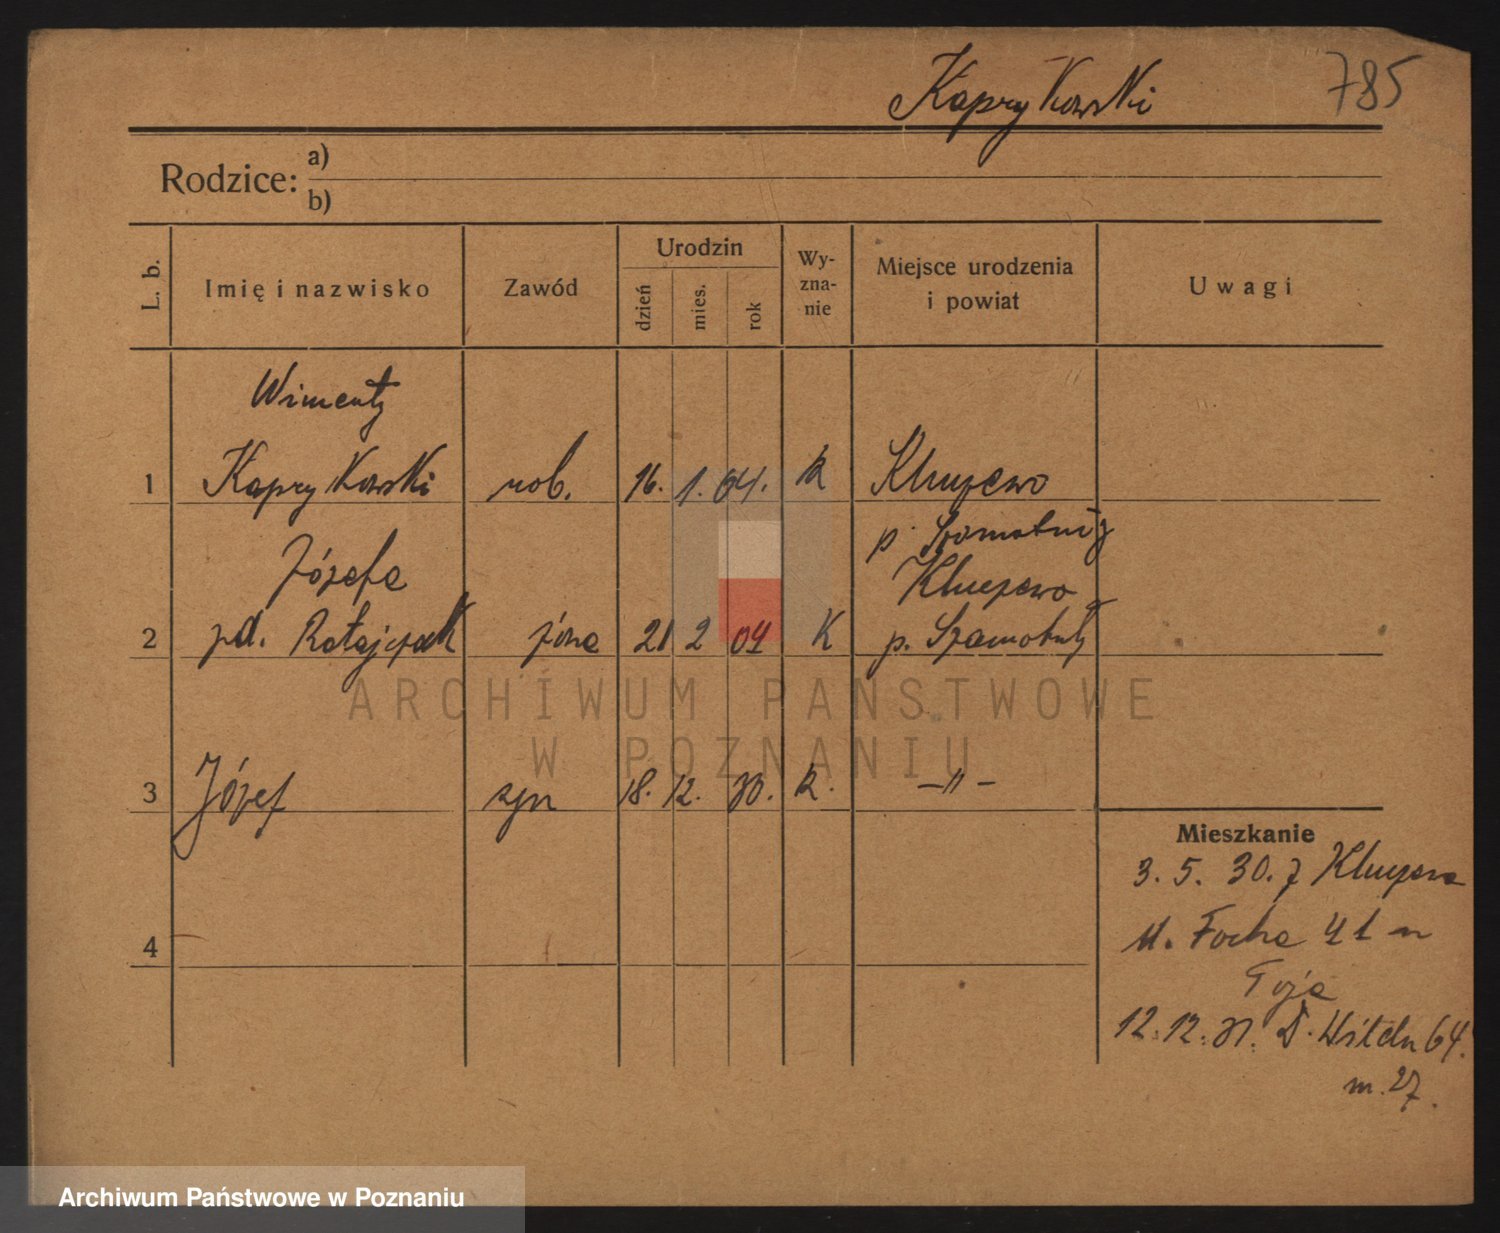 Kaprykowski 785
Rodzice: a)
b)
L. b. Imię i nazwisko Zawód Urodzin dzień mies. rok Wy-zna-nie Miejsce urodzenia i powiat Uwagi
Wincenty
1 Kaprykowski rob. 16. 1. 04. k Kluczewo
p. Szamotuły
Józefa Kluczewo
2 zd. Ratajczak żona 21 2 04 K p. Szamotuły
3 Józef syn 18. 12. 30. k. -"-
Mieszkanie
3. 5. 30. z Kluczewa
4 ul. Focha 41 m
12. 12. 31. D. Wilda 64.
m. 27.
ARCHIWUM PAŃSTWOWE
W POZNANIU
Archiwum Państwowe w Poznaniu